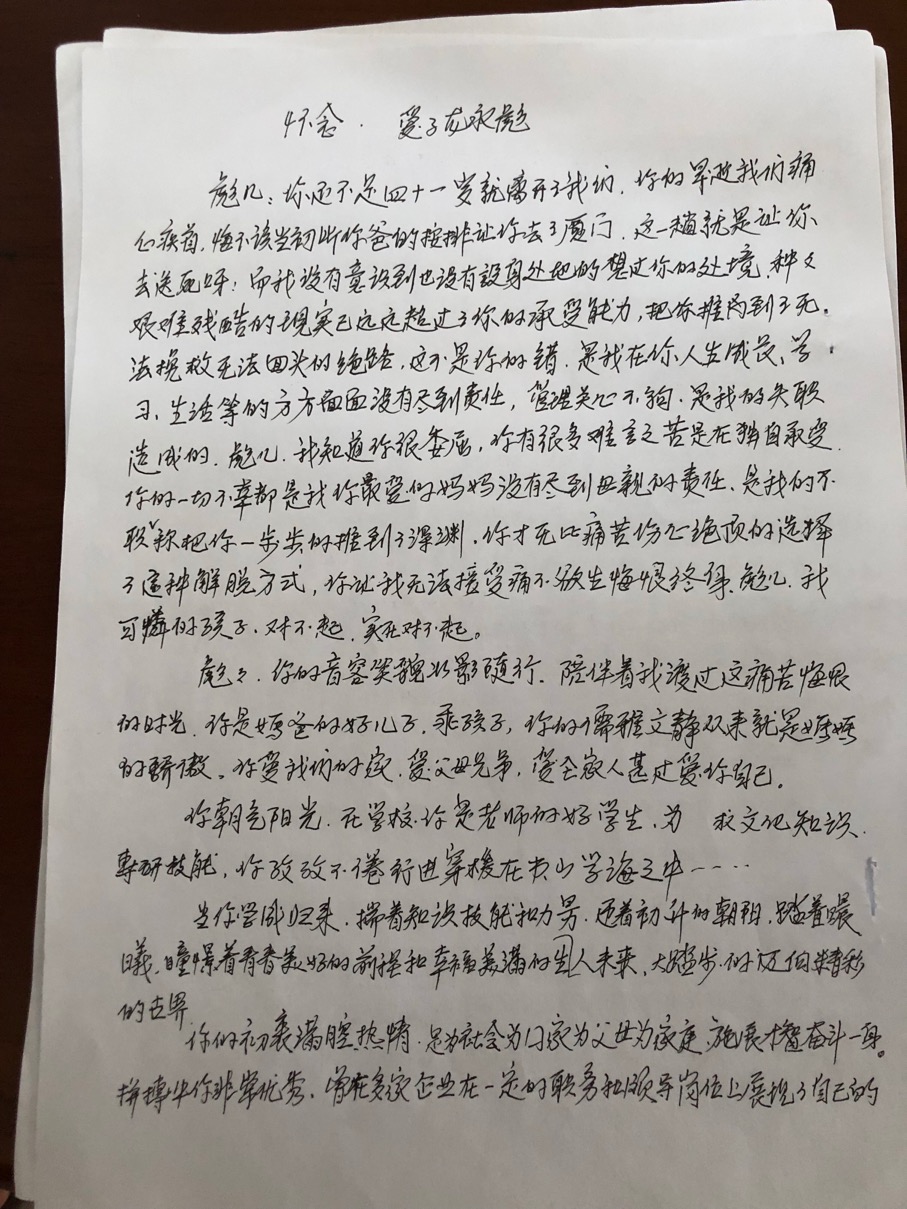 怀念·爱子龙永彪
彪儿：你还不足四十一岁就离开了我们，你的早逝我们痛
心疾首，悔不该当初听你爸的按排让你去了厦门，这一趟就是让你
去送死呀；而我没有意识到也没有設身处地的想过你的处境，种々
艰难残酷的現实已远远超过了你的承受能力，把你推向到了无
法挽救无法回头的绝路，这不是你的错，是我在你人生成长、学
习、生活等的方方面面没有尽到责任，管理关心不够，是我的失职
造成的，彪儿，我知道你很委屈，你有很多难言之苦是在独自承受，
你的一切不幸都是我你最爱的妈妈没有尽到母亲的责任、是我的不
职称把你一步步的推到了深渊，你才无比痛苦伤心绝顶的选择
了這种解脱方式，你让我无法接受痛不欲生悔恨终身，彪儿，我
可憐的孩子、对不起，实在对不起。
彪々，你的音容笑貌如影随行、陪伴着我渡过这痛苦悔恨
的时光，你是妈爸的好儿子，乖孩子，你的儒雅文静从来就是妈妈
的骄傲。你爱我们的家，爱父母兄弟，爱全家人甚过爱你自己。
你朝气阳光，在学校你是老师的好学生、为 求文化知识、
専研技能，你孜孜不倦行进穿梭在书山学海之中……
当你学成归来，揣着知识技能和力量，迎着初升的朝阳，踏着晨
曦，瞳憬着青春美好的前程和幸福美满的人未来，大踏步的迈向精彩
的世界
你的初衷满腔热情，是为社会为国家为父母为家庭，施展才智奋斗一身。
拼搏中你非常优秀，曾在多家企业在一定的职务和领导岗位上展現了自己的